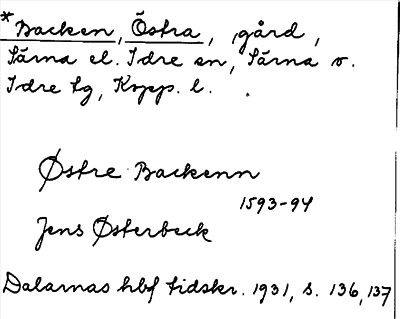 *Backen, Östra, gård,
Särna el. Idre sn, Särna o.
Idre tg, Kopp. l.
Østre Backenn
1593-94
Jens Østerbeck
Dalarnas hbf tidskr. 1931, s. 136, 137